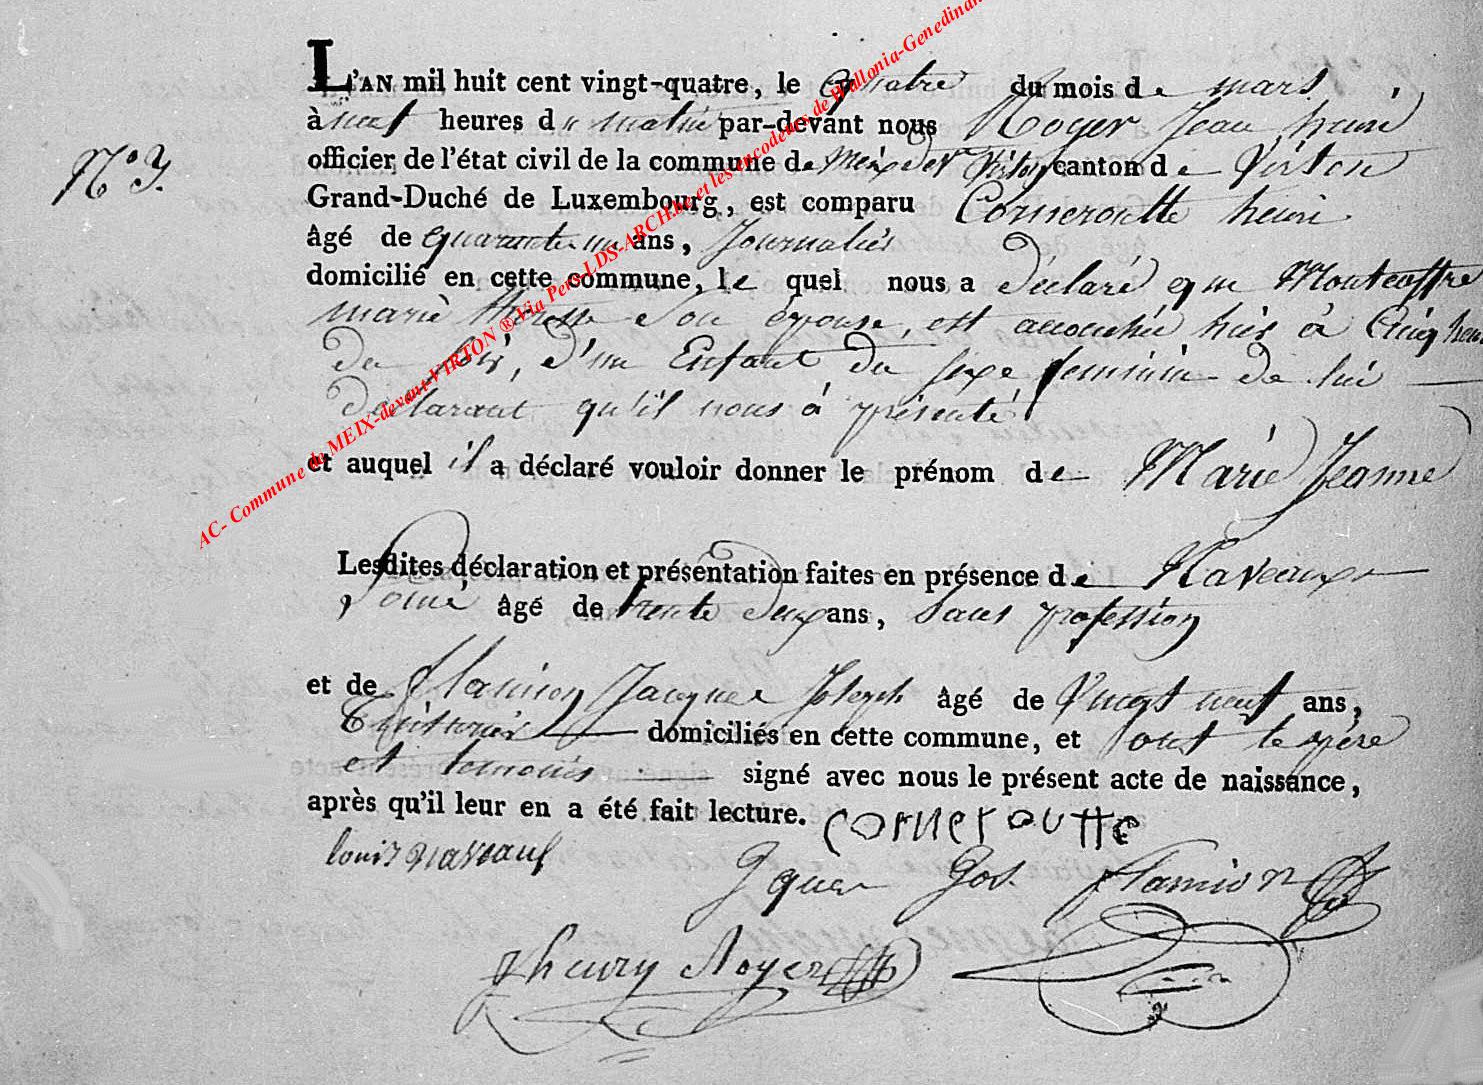 L'AN mil huit cent vingt-quatre, le quatre du mois de mars
à neuf heures du matin par-devant nous Royer Jean henri
officier de l'état civil de la commune de Meix devt Virton canton de Virton
Grand-Duché de Luxembourg, est comparu Corneroutte henri
âgé de quarante un ans, Journalier
domicilié en cette commune, le quel nous a déclaré que
N° 7.
marie therese son epouse, est accouchée hier à Cinq heu
du soir, d'un Enfant du sixe feminin de lui
declarant qu'il nous à présenté
et auquel il a déclaré vouloir donner le prénom de Marie Jeanne
Lesdites déclaration et présentation faites en présence de Naveaux
Louis âgé de trente deux ans, sans profession
et de flamion Jacques Joseph âgé de Vingt neuf ans,
domiciliés en cette commune, et ont le père
et temoins signé avec nous le présent acte de naissance,
après qu'il leur en a été fait lecture.
corneroutte
louis naveaux
Jques Jos. flamion
Jhenry Royer
AC- Commune de MEIX-devant-VIRTON ® Via Pers-LDS-ARCH.be et les encodeurs de Wallonia-Genedinan